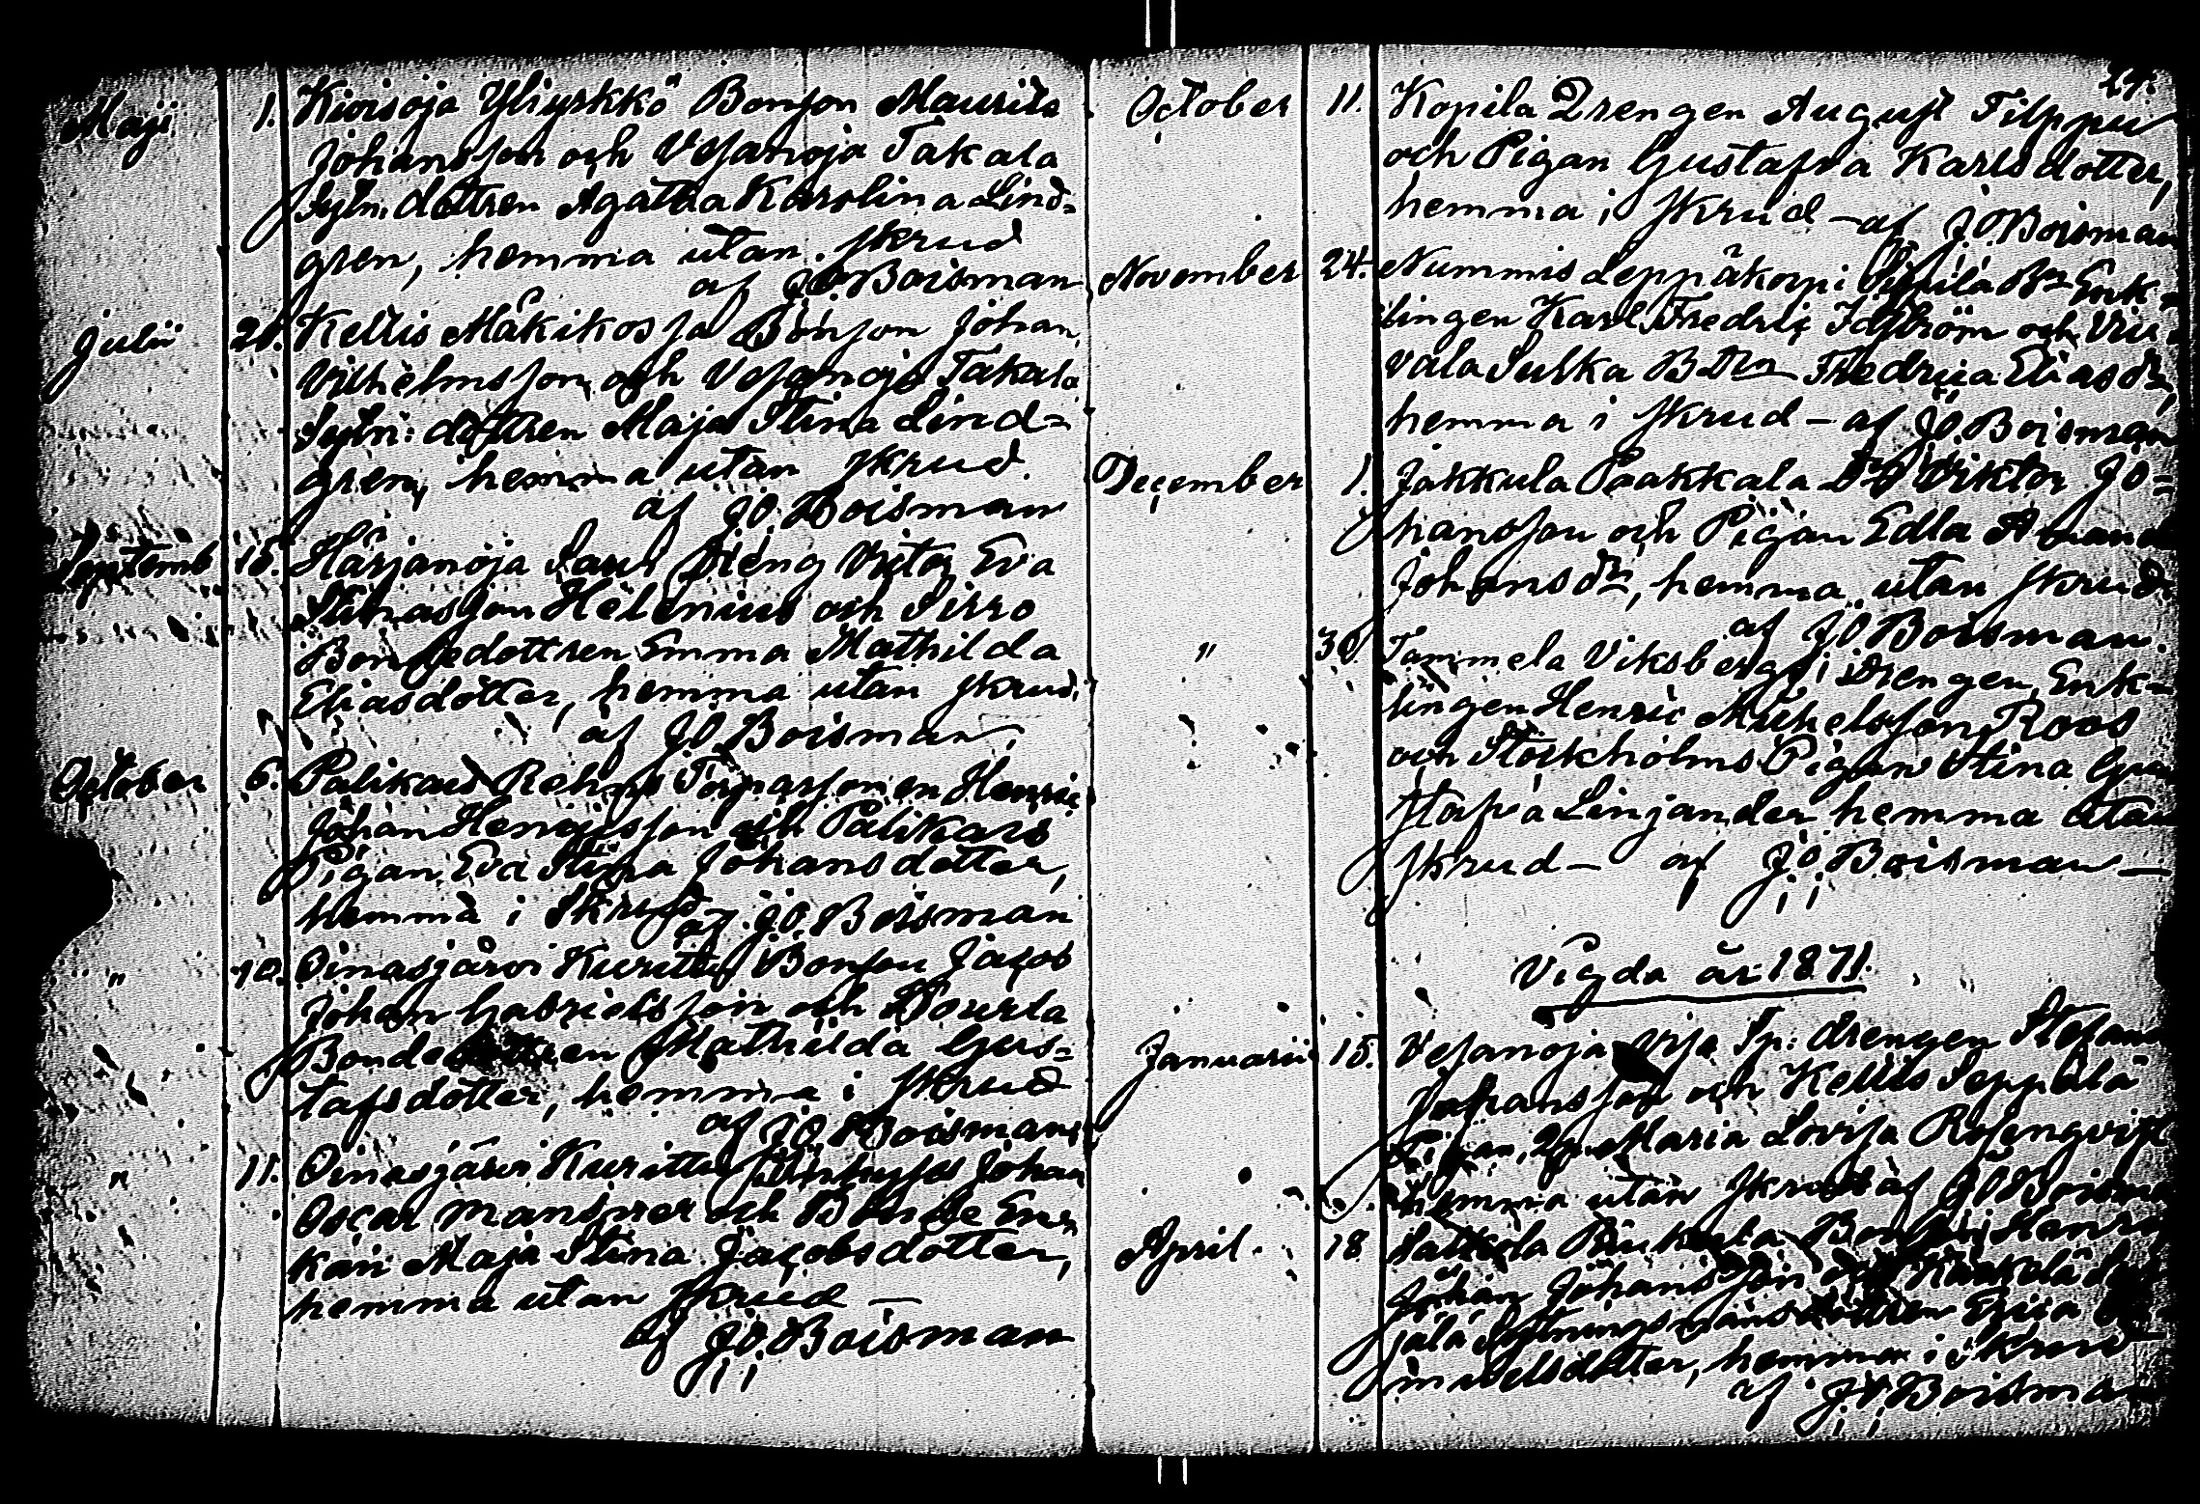 Maji 1. Kivisoja Yliyrkkö Bonson Maurits
Johansson och Vesanoja Takala
Sytn. dottren Agatha Karolina Lind-
gren, hemma utan skrud
af J.O. Boisman
Julii 21. Kellis Mäkikossa Bonson Johan
Vilhelmsson och Vesanoja Takala
Sytn: dottren Maja Stina Lind-
gren, hemma utan skrud.
af J.O. Boisman
Septemb 15. Harjanoja Dreng Victor Eva
Stinasson Helenius och Sirro
Bondedottren Emma Mathilda
Eliasdotter, hemma utan skrud.
af J.O. Boisman.
October 6. Palikais Henric
Johan Henricsson och Palikais
Pigan Eva Stina Johansdotter,
hemma i Skrud af J.O. Boisman
" 10. Oinasjärvi Kuritty Bonson Jacob
Johan Gabrielsson och Kourla
Bondedottren Mathilda Gus-
tafsdotter, hemma i skrud
af J.O. Boisman
" 11. Oinasjärvi Kuritty Johan
Oscar Mansner och Bonde En-
kan Maja Stina Jacobsdotter,
hemma utan skrud —
af J.O. Boisman
October 11. Kopila Drengen August Filppu
och Pigan Gustafva Karlsdotter,
hemma i skrud — af J.O. Boisman
November 24. Nummis Leppäkorpi Bn Enk-
lingen Karl Fredric och Viu-
vala Sulka Fredrica Eliasdr,
hemma i skrud — af J.O. Boisman
December 1. Jakkula Paakkala Viktor Jo-
hansson och Pigan Edla Amanda
Johansdr, hemma utan skrud
af J.O. Boisman.
" 30. Tammela Viksbergs Drengen, Enk-
lingen Henric Michelsson Roos
och Stockholms Pigan Stina Gus-
tafva Linjander hemma utan
skrud — af J.O. Boisman —
Vigda år 1871.
Januarii 15. Vesanoja drengen Stefanus
Johansson och Kellis Seppälä
Pigan, Maria Lovisa Rosenqvist
hemma utan skrud af J.O. Boisman
April. 18 Bonson Henric
Johan Johansson och
dottren Erica
hemma i Skrud
af J.O. Boisman